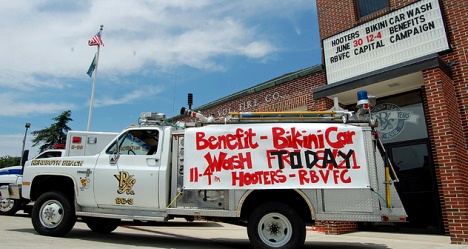 HOOTERS BIKINI CAR WASH
JUNE 30 12-4 BENEFITS
RBVFC CAPITAL CAMPAIGN
FIRE CO.
REHOBOTH BEACH
Benefit - Bikini Car
Wash FRIDAY
11-4 HOOTERS - RBVFC